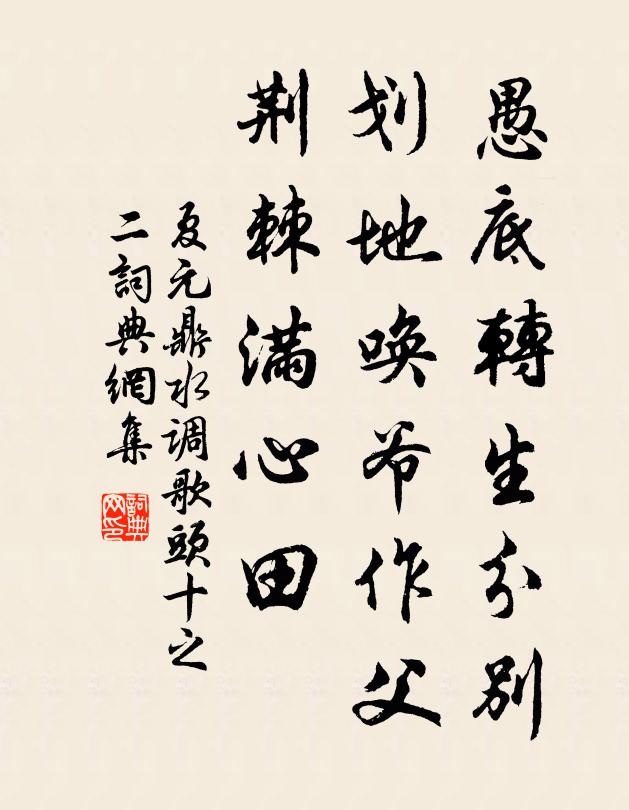 愚底轉生分别
划地唤爷作父
荆棘满心田
夏元鼎水调歌頭十之
二詞典網集
詞典网印